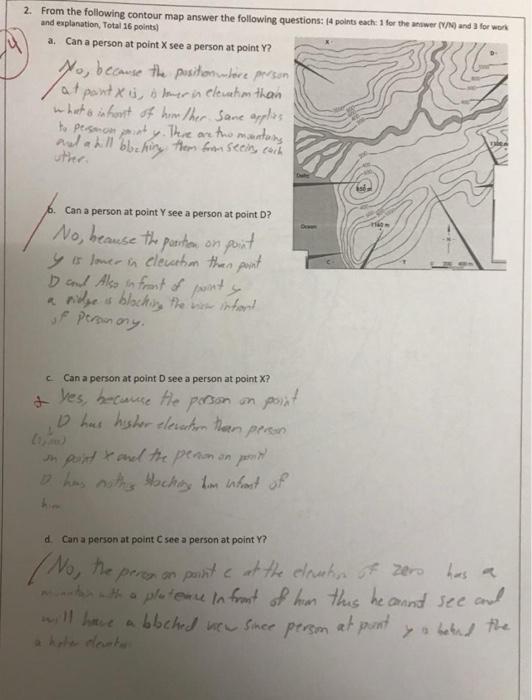 2. From the following contour map answer the following questions: (4 points each: 1 for the answer (Y/N) and 3 for work
and explanation, Total 16 points)
4
a. Can a person at point X see a person at point Y?
No, because the position where person
at point X is, is lower in elevation than
what is infront of him/her. Same applies
to person point y. There are two mountains
and a hill blocking them from seeing each
other.
X
D
Delta
650m
Ocean
1160 m
N
C
Y
b. Can a person at point Y see a person at point D?
No, because the position on point
y is lower in elevation than point
D and Also in front of point y
a ridge is blocking the view infront
of person on y.
c. Can a person at point D see a person at point X?
Yes, because the person on point
D has higher elevation than person
on point x and the person on point
D has nothing blocking him infront of
him
d. Can a person at point C see a person at point Y?
No, the person on point c at the elevation of zero has a
mountain with a plateau In front of him thus he cannot see and
will have a blocked view since person at point y is behind the
a higher elevation